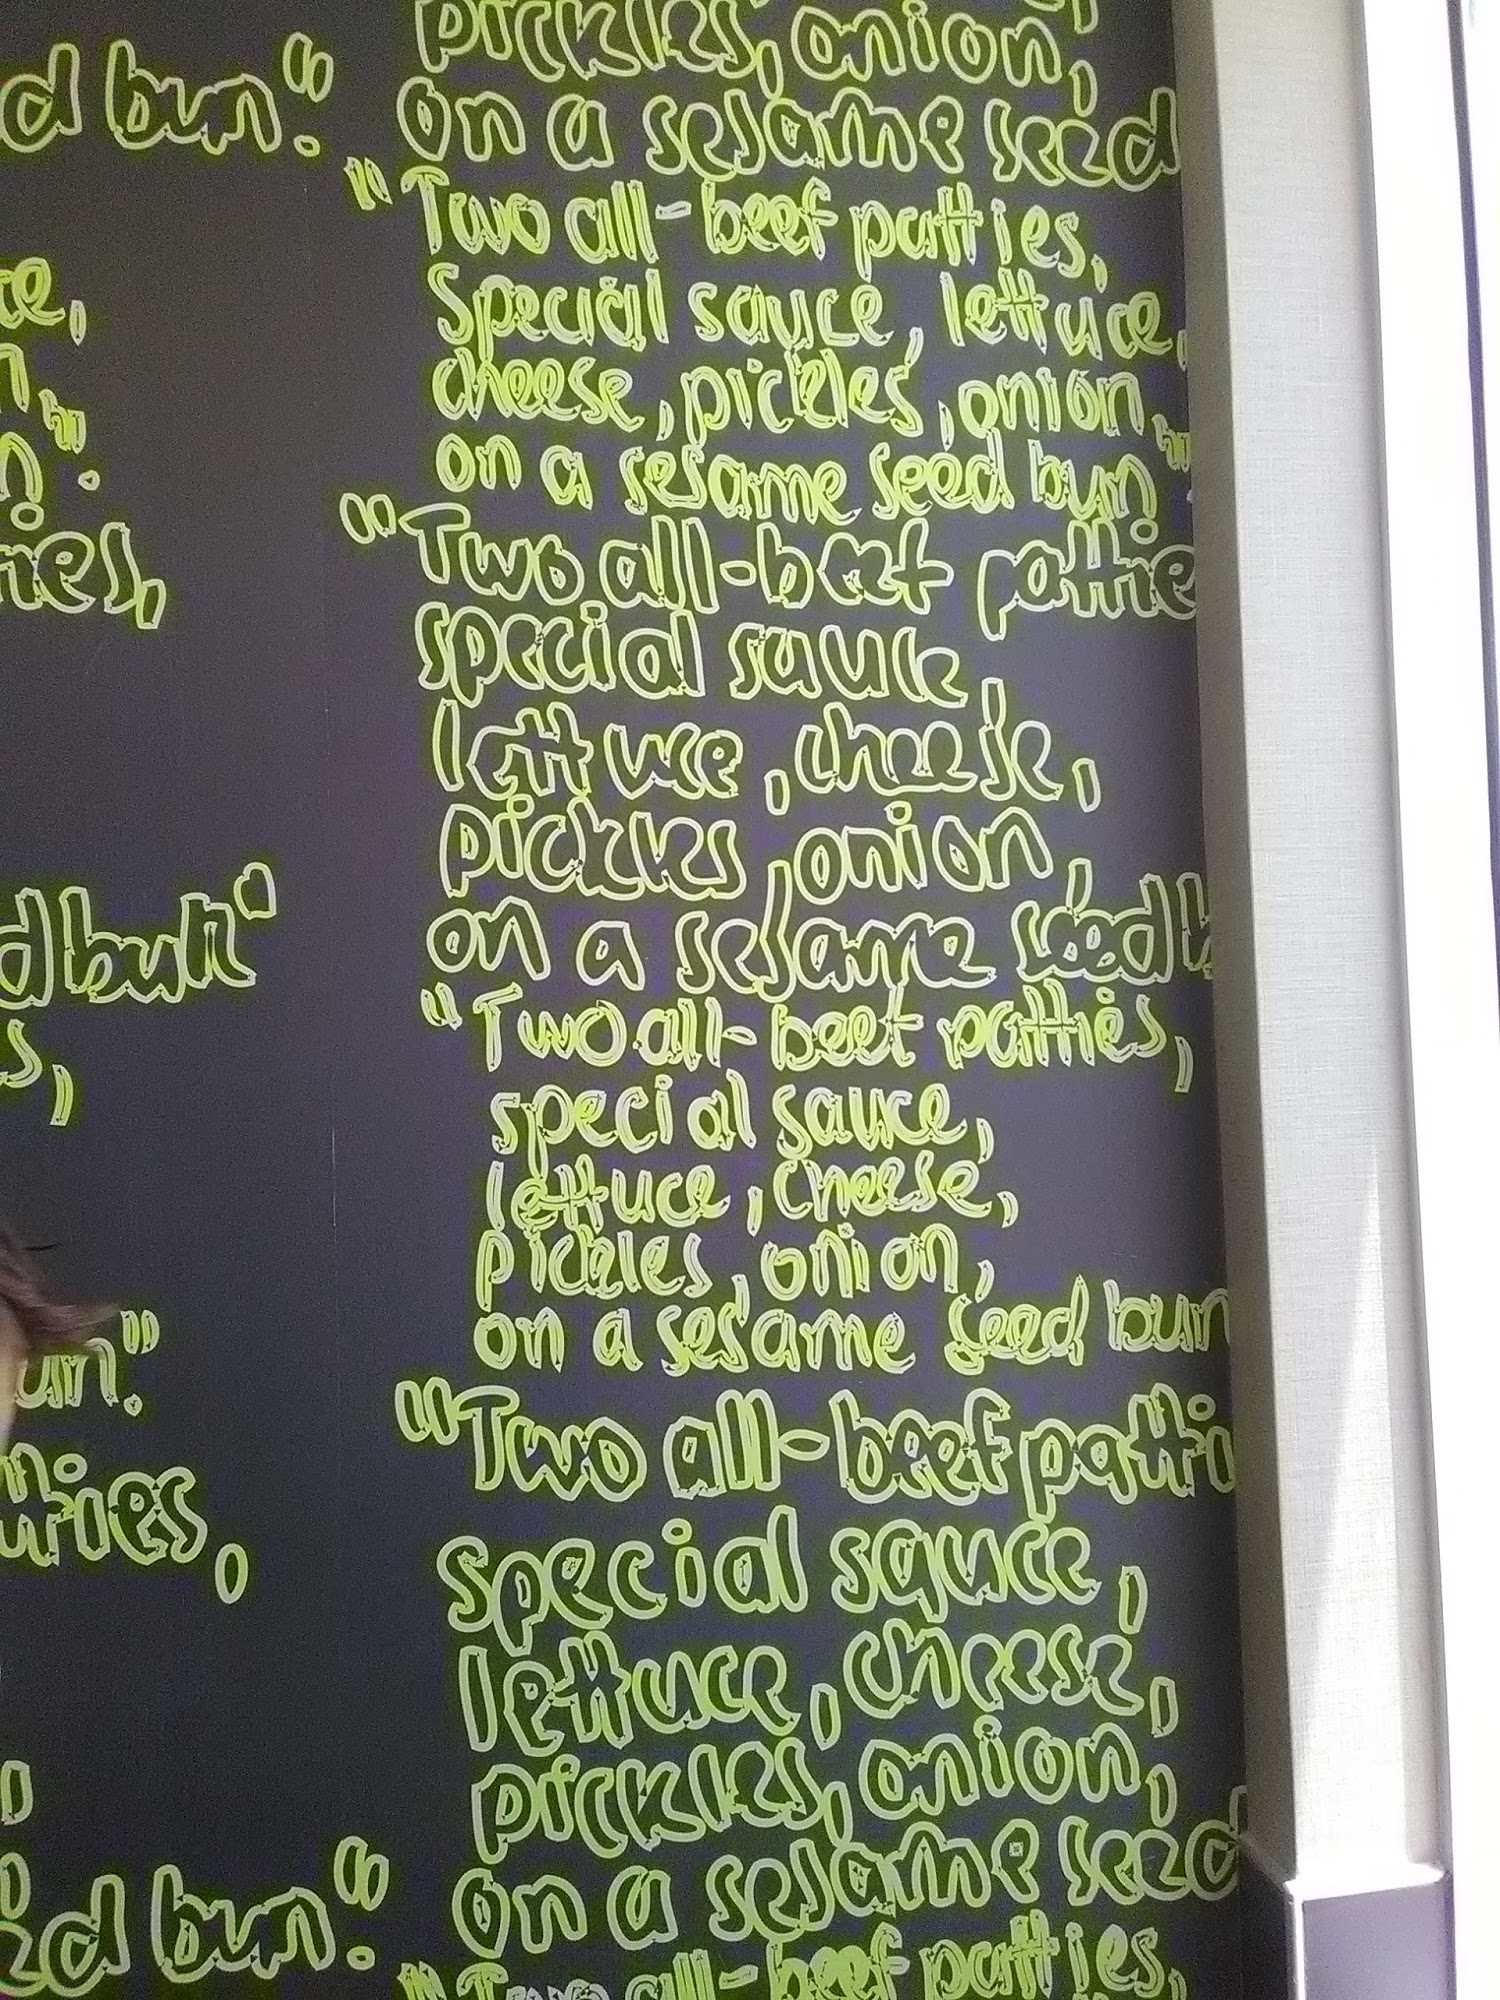 d bun".
ce,
n,
n".
ties,
d bun"
s,
un".
tties,
ed bun".
pickles, onion,
on a sesame seed
"Two all-beef patties,
special sauce, lettuce,
cheese, pickles, onion,
on a sesame seed bun"
"Two all-beef pattie
special sauce,
lettuce, cheese,
pickles, onion,
on a sesame seed b
"Two all-beef patties,
special sauce,
lettuce, cheese,
pickles, onion,
on a sesame seed bun
"Two all-beef patti
special sauce,
lettuce, cheese,
pickles, onion,
on a sesame seed
"Two all-beef patties,